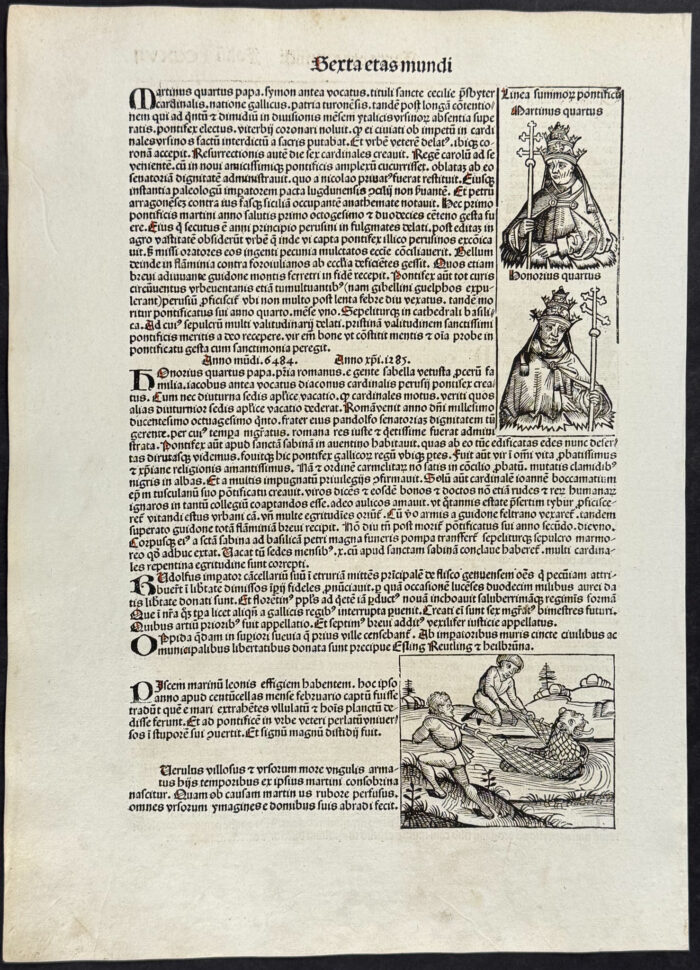 Sexta etas mundi
Martinus quartus papa. symon antea vocatus. tituli sancte cecilie p̄sbyter
cardinalis. natione gallicus. patria turonēsis. tandē post longā cōtentio/
nem qui ad q̄ntū ⁊ dimidiū in diuisionis mēsem ytalicis vrsinor absentia supe
ratis. pontifex electus. viterbij coronari noluit. ꝙ ei ciuitati ob impetū in cardi
nales vrsinos factū interdictū a sacris putabat. Et vrbē veterē delatꝰ. ibiqꝫ co/
ronā accepit. Resurrectionis autē die sex cardinales creauit. Regē carolū ad se
venientē. cū in noui amicissimiqꝫ pontificis amplexū cucurrisset. oblatā ab eo
senatoriā dignitatē administrauit. quo a nicolao priuatꝰ fuerat restituit. Eiusqꝫ
instantia paleologū impatorem pacta lugdunensis ꝯcilij non ẜuantē. Et petrū
arragonēses contra ius fasqꝫ siciliā occupantē anathemate notauit. Hec primo
pontificis martini anno salutis primo octogesimo ⁊ duodecies cēteno gesta fu
ere. Eius ꝙ secutus ē anni principio perusini in fulgmates delati. post editas in
agro vastitatē obsiderūt vrbē ꝙ inde vi capta pontifex illico perusinos excōica
uit. ẜ missi oratores eos ingenti pecunia mulctatos ecc̄ie cōciliauerūt. Bellum
deinde in flāminia contra foroiulianos ab ecclia deficiētes gessit. Quos etiam
breui adiuuante guidone montis ferretri in fidē recepit. Pontifex aūt tot curis
circūuentus vrbeuentanis etiā tumultuantibꝰ (nam gibellini guelphos expu/
lerant) perusiū ꝓficiscit vbi non multo post lenta febre diu vexatus. tandē mo
ritur pontificatus sui anno quarto. mēse vno. Sepeliturqꝫ in cathedrali basili/
ca. Ad cuiꝰ sepulcrū multi valitudinarij delati. pristinā valitudinem sanctissimi
pontificis meritis a deo recepere. vir em̄ bone vt cōstitit mentis ⁊ oīa probe in
pontificatu gesta cum sanctimonia peregit.
Anno mūdi. 6484. Anno xp̄i. 1285.
HOnorius quartus papa. pria romanus. e gente sabella vetusta ꝓcerū fa
milia. iacobus antea vocatus diaconus cardinalis perusij pontifex crea/
tus. Cum nec diuturna sedis aplice vacatio. ꝙ cardinales motus. veriti quos
alias diuturnior sedis aplice vacatio dederat. Romā venit anno dn̄i millesimo
ducentesimo octuagesimo q̄nto. frater eius pandolfo senatorias dignitatem tū
gerente. per cuiꝰ tempa mgr̄atus. romana res iuste ⁊ q̄etissime fuerat admini
strata. Pontifex aūt apud sanctā sabinā in auentino habitauit. quas ab eo tūc edificatas edes nunc defer/
tas dirutasqꝫ videmus. fouitqꝫ hic pontifex gallicor regū vbiqꝫ ptes. Fuit aūt vir ī omī vita ꝓbatissimus
⁊ xp̄iane religionis amantissimus. Nā ⁊ ordinē carmelitar nō satis in cōcilio ꝓbatū. mutatis clamidibꝰ
nigris in albas. Et a multis impugnatū priuilegijs ꝯfirmauit. Solū aūt cardinalē ioannē boccamatium
ep̄m tusculanū suo pōtificatu creauit. viros dicēs ⁊ eosdē bonos ⁊ doctos nō etiā rudes ⁊ rer humanar
ignaros in tantū collegiū coaptandos esse. adeo aulicos amauit. vt q̄tannis estate p̄sertim tybur ꝓficisce/
ret vitandi estus vrbani cā. vn̄ multe egritudīes oriūt. Cū ꝟo armis a guidone feltrano vexaret. tandem
superato guidone totā flāminiā breui recipit. Nō diu tn̄ post morit pōtificatus sui anno secūdo. die vno.
Corpusqꝫ eiꝰ a sctā sabina ad basilicā petri magna funeris pompa transfert sepeliturqꝫ sepulcro marmo/
reo qd adhuc extat. Vacat tū sedes mensibꝰ. x. cū apud sanctam sabinā conclaue haberet. multi cardina/
les repentina egritudine sunt correpti.
RUdolfus impator cācellariū suū ī etruriā mittēs prīcipalē de flisco genuensem oēs ꝙ pecūiam attri/
buerīt ī libtate dimissos īpij fideles ꝓnūciauit. ꝙ quā occasionē lucēses duodecim milibus aurei da
tis libtate donati sunt. Et florētini ppl̄s ad q̄etē iā ꝓductꝰ nouā inchoauit saluberrimāqꝫ regiminis formā
Que ī nr̄a qꝫ tꝑa licet aliqn̄ a gallicis regibꝰ interrupta ꝑuenit. Creati eī sunt sex mgr̄atꝰ bimestres futuri.
Quibus artiū prioribꝰ fuit appellatio. Et septimꝰ breui additꝰ vexilifer iusticie appellatus.
OPpida q̄dam in supiori sueuia ꝙ prius ville censebant. Ab impatoribus muris cincte ciuilibus ac
municipalibus libertatibus donata sunt precipue Esling Reutling ⁊ heilbrūna.
PIscem marinū leonis effigiem habentem. hoc ipso
anno apud centūcellas mense februario captū fuisse
tradūt que e mari extrahētes vllulatū ⁊ hoīs planctū de
disse ferunt. Et ad pontificē in vrbe veteri perlatū vniuer/
sos ī stuporē sui ꝯuertit. Et signū magnū distidij fuit.
Uerulus villosus ⁊ vrsorum more vngulis arma/
tus hijs temporibus ex ipsius martini consobrina
nascitur. Quam ob causam martin us rubore perfusus.
omnes vrsorum ymagines e domibus suis abradi fecit.
Linea summor pontificū
Martinus quartus
Honorius quartus